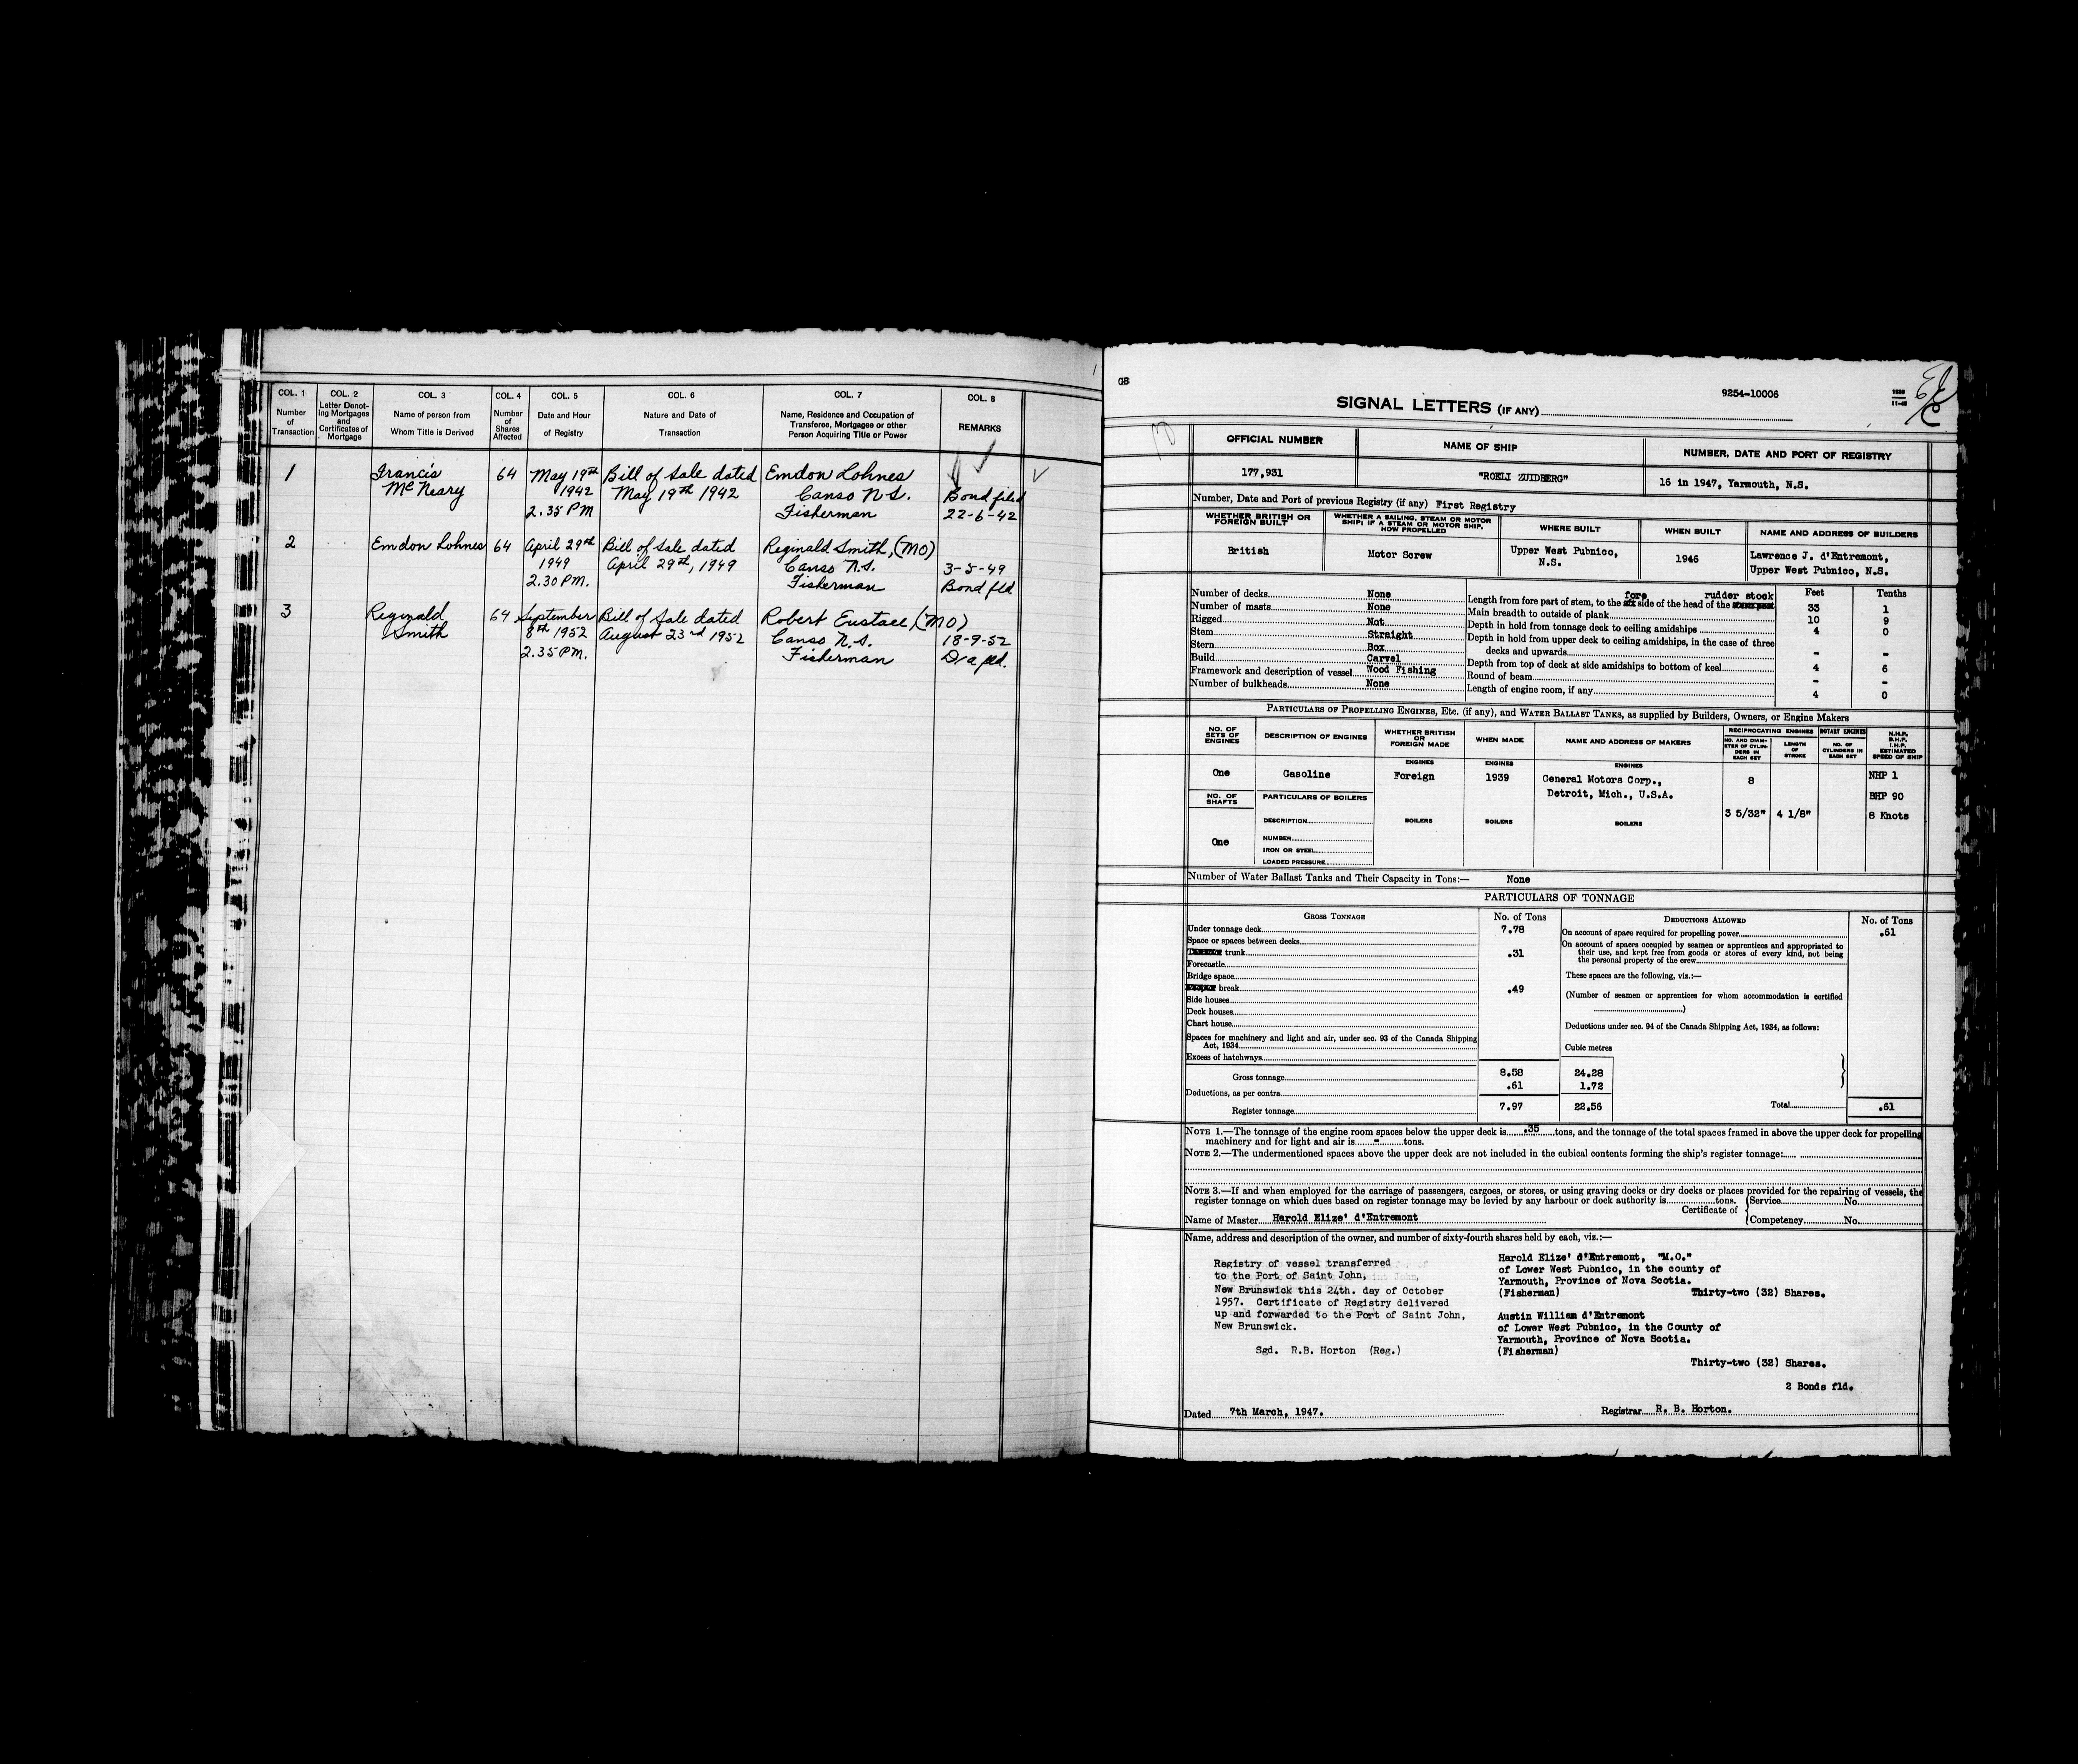 COL. 1 COL. 2 COL. 3 COL. 4 COL. 5 COL. 6 COL. 7 COL. 8
Number of Transaction
Letter Denoting Mortgages and Certificates of Mortgage
Name of person from Whom Title is Derived
Number of Shares Affected
Date and Hour of Registry
Nature and Date of Transaction
Name, Residence and Occupation of Transferee, Mortgagee or other Person Acquiring Title or Power
REMARKS
1 Francis 64 May 19th Bill of Sale dated Emdon Lohnes
McNeary 1942 May 19th 1942 Canso N S. Bond filed
2.35 PM Fisherman 22-6-42
2 Emdon Lohnes 64 April 29th Bill of Sale dated Reginald Smith, (MO)
1949 April 29th, 1949 Canso N.S. 3-5-49
2.30 PM. Fisherman Bond fld
3 Reginald 64 September Bill of Sale dated Robert Eustace, (MO)
Smith 8th 1952 August 23rd 1952 Canso N.S. 18-9-52
2.35 PM. Fisherman D/a fld.
GB
9254-10006
SIGNAL LETTERS (IF ANY)
OFFICIAL NUMBER NAME OF SHIP NUMBER, DATE AND PORT OF REGISTRY
177,931 "ROELI ZUIDBERG" 16 in 1947, Yarmouth, N.S.
Number, Date and Port of previous Registry (if any) First Registry
WHETHER BRITISH OR FOREIGN BUILT
WHETHER A SAILING, STEAM OR MOTOR SHIP; IF A STEAM OR MOTOR SHIP, HOW PROPELLED
WHERE BUILT WHEN BUILT NAME AND ADDRESS OF BUILDERS
British Motor Screw Upper West Pubnico, N.S. 1946 Lawrence J. d'Entremont,
Upper West Pubnico, N.S.
Feet Tenths
Number of decks None
Number of masts None
Rigged Not
Stem Straight
Stern Box
Build Carvel
Framework and description of vessel Wood Fishing
Number of bulkheads None
fore rudder stock
Length from fore part of stem, to the side of the head of the 33 1
Main breadth to outside of plank 10 9
Depth in hold from tonnage deck to ceiling amidships 4 0
Depth in hold from upper deck to ceiling amidships, in the case of three
decks and upwards - -
Depth from top of deck at side amidships to bottom of keel 4 6
Round of beam - -
Length of engine room, if any 4 0
PARTICULARS OF PROPELLING ENGINES, ETC. (if any), and WATER BALLAST TANKS, as supplied by Builders, Owners, or Engine Makers
NO. OF SETS OF ENGINES
DESCRIPTION OF ENGINES
WHETHER BRITISH OR FOREIGN MADE
WHEN MADE
NAME AND ADDRESS OF MAKERS
RECIPROCATING ENGINES ROTARY ENGINES
NO. AND DIAMETER OF CYLINDERS IN EACH SET
LENGTH OF STROKE
NO. OF CYLINDERS IN EACH SET
N.H.P. B.H.P. I.H.P. ESTIMATED SPEED OF SHIP
ENGINES ENGINES ENGINES
One Gasoline Foreign 1939 General Motors Corp., 8 NHP 1
Detroit, Mich., U.S.A. BHP 90
NO. OF SHAFTS PARTICULARS OF BOILERS
3 5/32" 4 1/8" 8 Knots
DESCRIPTION BOILERS BOILERS BOILERS
One NUMBER
IRON OR STEEL
LOADED PRESSURE
Number of Water Ballast Tanks and Their Capacity in Tons:— None
PARTICULARS OF TONNAGE
GROSS TONNAGE No. of Tons DEDUCTIONS ALLOWED No. of Tons
Under tonnage deck 7.78
Space or spaces between decks
trunk .31
Forecastle
Bridge space
break .49
Side houses
Deck houses
Chart house
Spaces for machinery and light and air, under sec. 93 of the Canada Shipping
Act, 1934
Excess of hatchways
Gross tonnage 8.58 24.28
Deductions, as per contra .61 1.72
Register tonnage 7.97 22.56
On account of space required for propelling power .61
On account of spaces occupied by seamen or apprentices and appropriated to
their use, and kept free from goods or stores of every kind, not being
the personal property of the crew
These spaces are the following, viz.:—
(Number of seamen or apprentices for whom accommodation is certified
)
Deductions under sec. 94 of the Canada Shipping Act, 1934, as follows:
Cubic metres
Total .61
NOTE 1.—The tonnage of the engine room spaces below the upper deck is .35 tons, and the tonnage of the total spaces framed in above the upper deck for propelling
machinery and for light and air is - tons.
NOTE 2.—The undermentioned spaces above the upper deck are not included in the cubical contents forming the ship's register tonnage:
NOTE 3.—If and when employed for the carriage of passengers, cargoes, or stores, or using graving docks or dry docks or places provided for the repairing of vessels, the
register tonnage on which dues based on register tonnage may be levied by any harbour or dock authority is tons.
Certificate of Service No.
Competency No.
Name of Master Harold Elize' d'Entremont
Name, address and description of the owner, and number of sixty-fourth shares held by each, viz.:—
Registry of vessel transferred
to the Port of Saint John,
New Brunswick this 24th. day of October
1957. Certificate of Registry delivered
up and forwarded to the Port of Saint John,
New Brunswick.
Sgd. R.B. Horton (Reg.)
Harold Elize' d'Entremont, "M.O."
of Lower West Pubnico, in the county of
Yarmouth, Province of Nova Scotia.
(Fisherman) Thirty-two (32) Shares.
Austin William d'Entremont
of Lower West Pubnico, in the County of
Yarmouth, Province of Nova Scotia.
(Fisherman)
Thirty-two (32) Shares.
2 Bonds fld.
Dated 7th March, 1947. Registrar R. B. Horton.